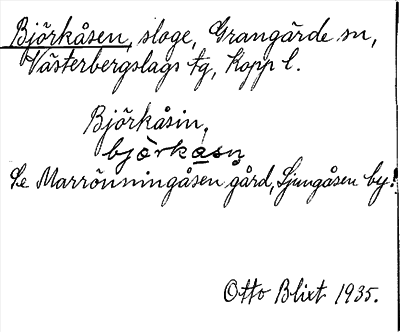 Björkåsen, sloge, Grangärde sn,
Västerbergslags tg, Kopp l.
Björkåsin,
björkasn
Se Marrönningåsen gård, Ljungåsen by.
Otto Blixt 1935.